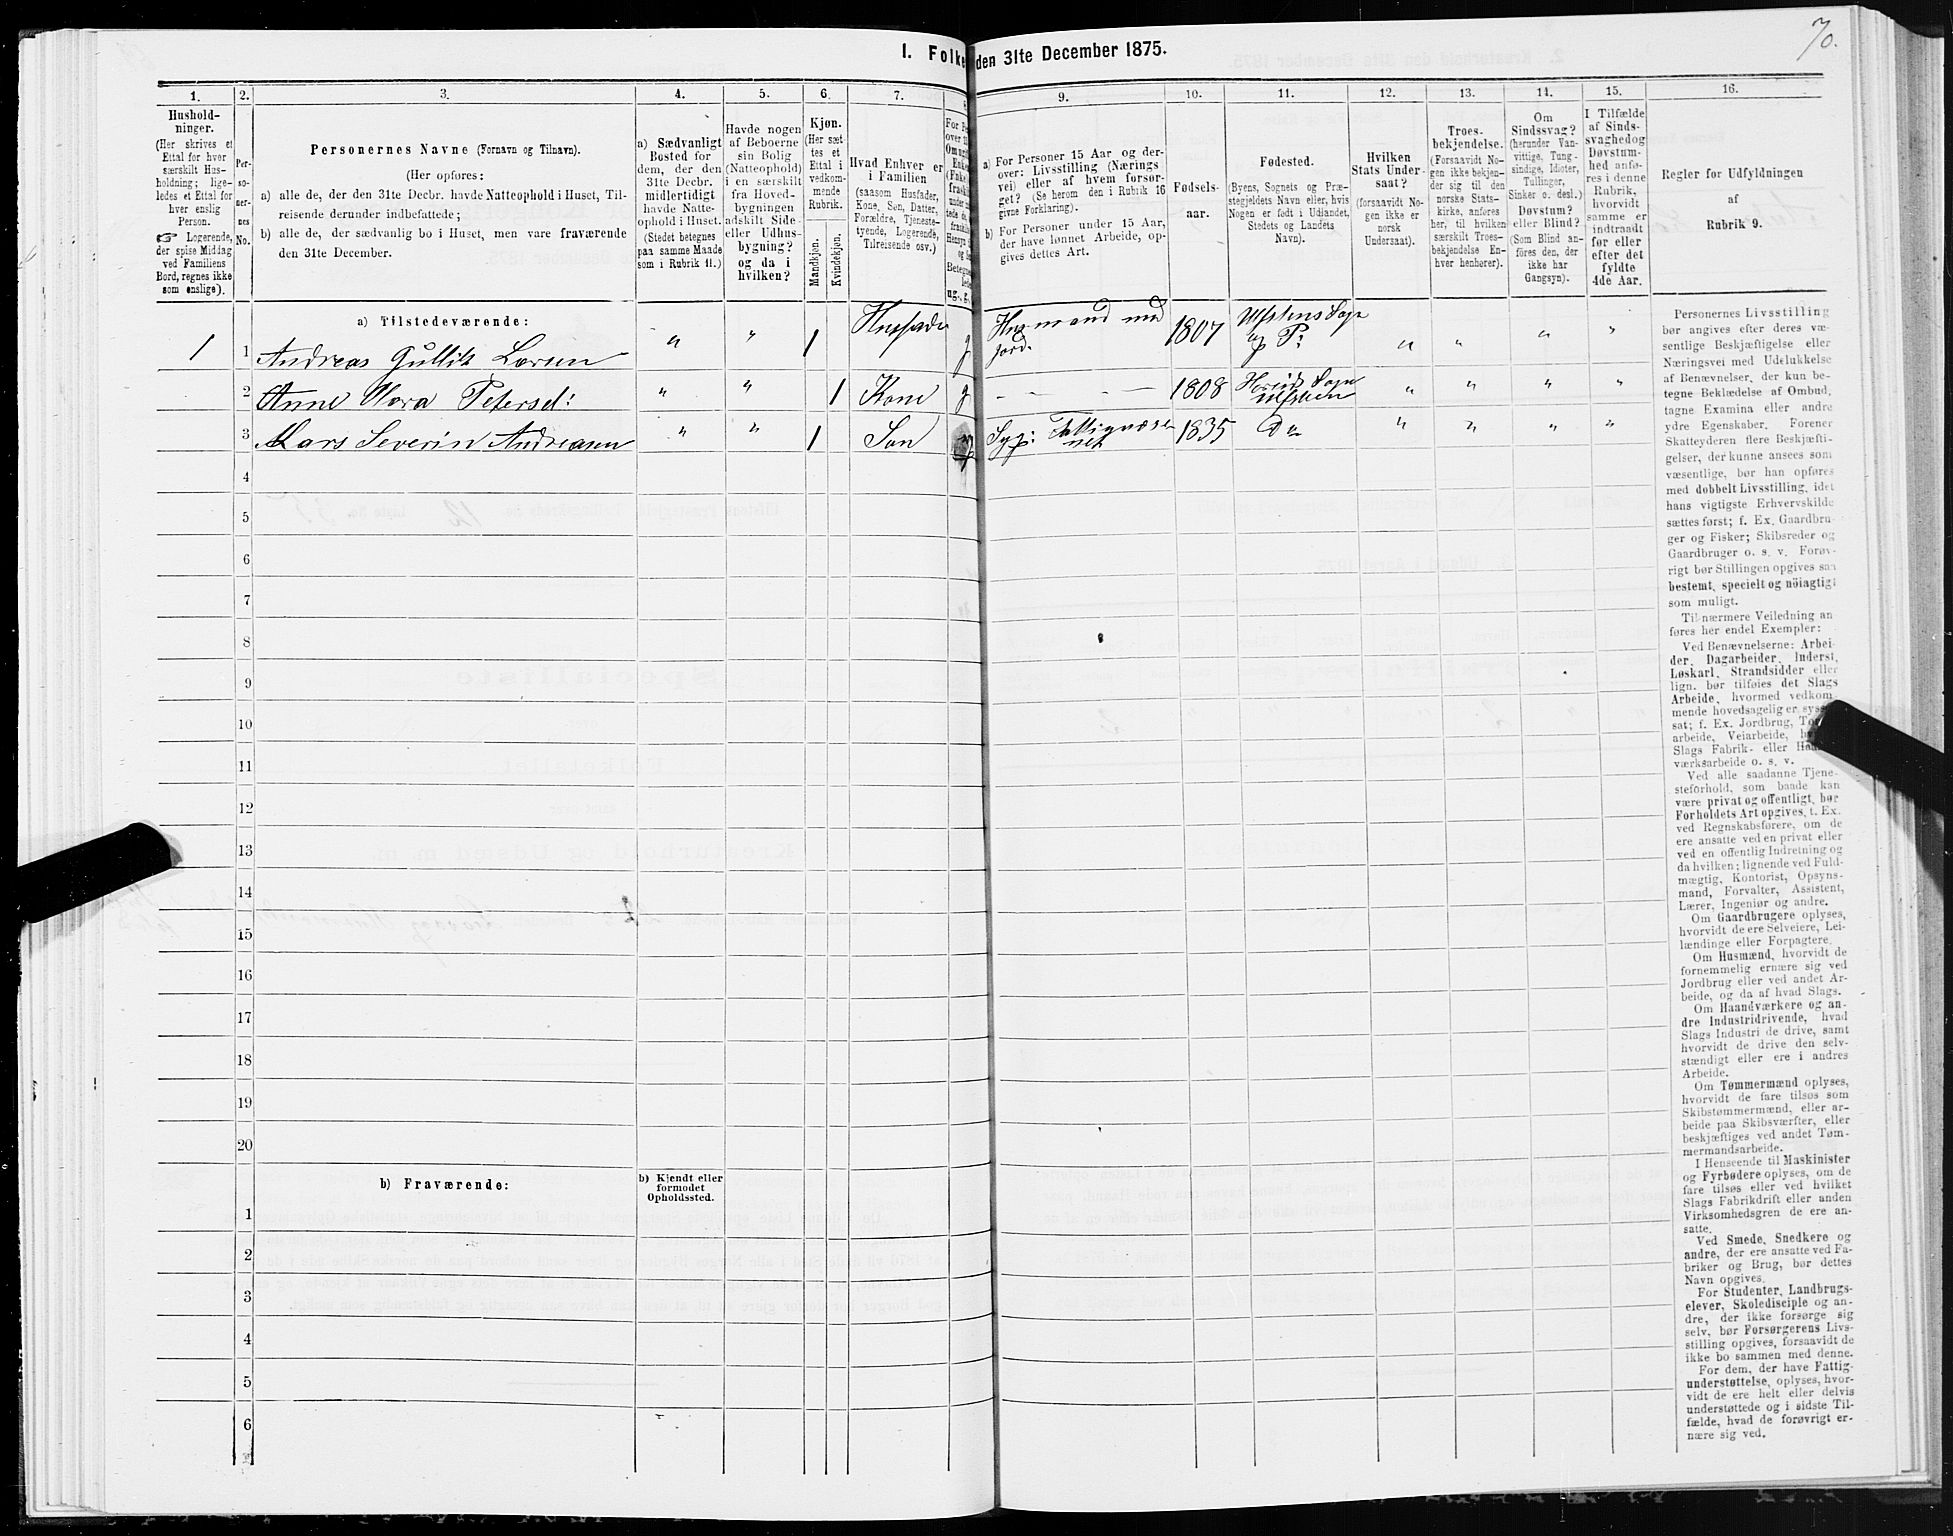 70.
I. Folke
den 31te December 1875.
1.
2.
3.
4.
5.
6.
7.
8
9.
10.
11.
12.
13.
14.
15.
16.
Hushold-
ninger.
(Her skrives et
Ettal for hver
særskilt Hus-
holdning; lige-
ledes et Ettal for
hver enslig
Person.
☞ Logerende,
der spise Middag
ved Familiens
Bord, regnes ikke
som enslige).
Per-
so-
ner-
nes
No.
Personernes Navne (Fornavn og Tilnavn).
(Her opføres:
a) alle de, der den 31te Decbr. havde Natteophold i Huset, Til-
reisende derunder indbefattede;
b) alle de, der sædvanlig bo i Huset, men vare fraværende
den 31te December.
a) Sædvanligt
Bosted for
dem, der den
31te Decbr.
midlertidigt
havde Natte-
ophold i Huset.
(Stedet betegnes
paa samme Maade
som i Rubrik 11.)
Havde nogen
af Beboerne
sin Bolig
(Natteophold)
i en særskilt
fra Hoved-
bygningen
adskilt Side-
eller Udhus-
bygning?
og da i
hvilken?
Kjøn.
(Her sæt-
tes et
Ettal i
vedkom-
mende
Rubrik.
Mandkjøn.
Kvindekjøn.
Hvad Enhver er
i Familien
(saasom Husfader,
Kone, Søn, Datter,
Forældre, Tjeneste-
tyende, Logerende,
Tilreisende osv.)
For Pe
over 1
Om u
Enke
(Fra
fraski
under
tede de,
fraskil
Hensyn t
og
Betegne
ug., g.,
a) For Personer 15 Aar og der-
over: Livsstilling (Nærings
vei) eller af hvem forsør-
get? (Se herom den i Rubrik 16
givne Forklaring).
b) For Personer under 15 Aar,
der have lønnet Arbeide, op-
gives dettes Art.
Fødsels-
aar.
Fødested.
(Byens, Sognets og Præ-
stegjeldets Navn eller, hvis
Nogen er født i Udlandet,
Stedets og Landets
Navn).
Hvilken
Stats Under-
saat?
(forsaavidt No-
gen ikke er
norsk
Undersaat).
Troes-
bekjendelse.
(Forsaavidt No-
gen ikke bekjen-
der sig til den
norske Stats-
kirke, anføres
her, til hvilken
særskilt Troes-
bekjendelse En-
hver henhører).
Om
Sindssvag?
(herunder Van-
vittige, Tung-
sindige, Idioter,
Tullinger,
Sinker o. desl.)
Døvstum?
eller Blind?
(Som Blind an-
føres den, der
ikke har
Gangsyn).
I Tilfælde
af Sinds-
svaghed og
Døvstum-
hed anfø-
res i denne
Rubrik,
hvorvidt
samme er
indtraadt
før eller
efter det
fyldte
4de Aar.
Regler for Udfyldningen
af
Rubrik 9.
a) Tilstedeværende:
1 1 Andreas Gullik Larsen " " 1 Husfader g Husmand med Jord. 1807 Ulfstens Sogn og P: " " " "
2 Anne Nora Petersd: " " 1 Kone g - - - 1808 Hareids Sogn Ulfsten " " " "
3 Lars Severin Andreasen " " 1 Søn Syg: Fattigvæse net 1835 Do " " " "
4
5
6
7
8
9
10
11
12
13
14
15
16
17
18
19
20
b) Fraværende:
b) Kjendt eller
formodet
Opholdssted.
1
2
3
4
5
6
Personernes Livsstilling
bør angives efter deres væ-
sentlige Beskjæftigelse eller
Næringsvei med Udelukkelse
af Benævnelser, der kun be-
tegne Beklædelse af Ombud,
tagne Examina eller andre
ydre Egenskaber. Forener
Skatteyderen flere Beskjæfti-
gelser, der kunne ansees som
væsentlige, bør han opføres
med dobbelt Livsstilling, idet
hans vigtigste Erhvervskilde
sættes først; f. Ex. Gaardbru-
ger og Fisker; Skibsreder og
Gaardbruger o. s. v. Forøv-
rigt bør Stillingen opgives saa
bestemt, specielt og nöiagtigt
som muligt.
Til nærmere Veiledning an-
føres her endel Exempler:
Ved Benævnelserne: Arbei-
der, Dagarbeider, Inderst,
Løskarl, Strandsidder eller
lign. bør tilføies det Slags
Arbeide, hvormed vedkom-
mende hovedsagelig er syssel
sat; f. Ex. Jordbrug, Tom
arbeide, Veiarbeide, h
Slags Fabrik- eller Haa
værksarbeide o. s. v.
Ved alle saadanne Tjene-
steforhold, som baade kan
være privat og offentligt, bør
Forholdets Art opgives, t. Ex.
ved Regnskabsførere, om de
ere ansatte ved en privat eller
ved en offentlig Indretning og
da hvilken; lignende ved Fuld-
mægtig, Kontorist, Opsyns-
mand, Forvalter, Assistent,
Lærer, Ingeniør og andre.
Om Gaardbrugere oplyses,
hvorvidt de ere Selveiere, Lei-
lændinge eller Forpagtere.
Om Husmænd, hvorvidt de
fornemmelig ernære sig ved
Jordbrug eller ved andet Ar-
beide, og da af hvad Slags.
Om Haandværkere og an-
dre Industridrivende, hvad
Slags Industri de drive, samt
hvorvidt de drive den selv-
stændigt eller ere i andres
Arbeide.
Om Tømmermænd oplyses,
hvorvidt de fare tilsøs som
Skibstømmermænd, eller ar-
beide paa Skibsværfter, eller
beskjæftiges ved andet Tøm-
mermandsarbeide.
I Henseende til Maskinister
og Fyrbødere oplyses, om de
fare tilsøs eller ved hvilket
Slags Fabrikdrift eller anden
Virksomhedsgren de ere an-
satte.
Ved Smede, Snedkere og
andre, der ere ansatte ved Fa-
briker og Brug, bør dettes
Navn opgives.
For Studenter, Landbrugs-
elever, Skoledisciple og an-
dre, der ikke forsørge sig
selv, bør Forsørgerens Livs-
stilling opgives, forsaavidt de
ikke bo sammen med denne.
For dem, der have Fattig-
understøttelse, oplyses, hvor-
vidt de ere helt eller delvis
understøttede og i sidste Til-
fælde, hvad de forøvrigt er-
nære sig ved.